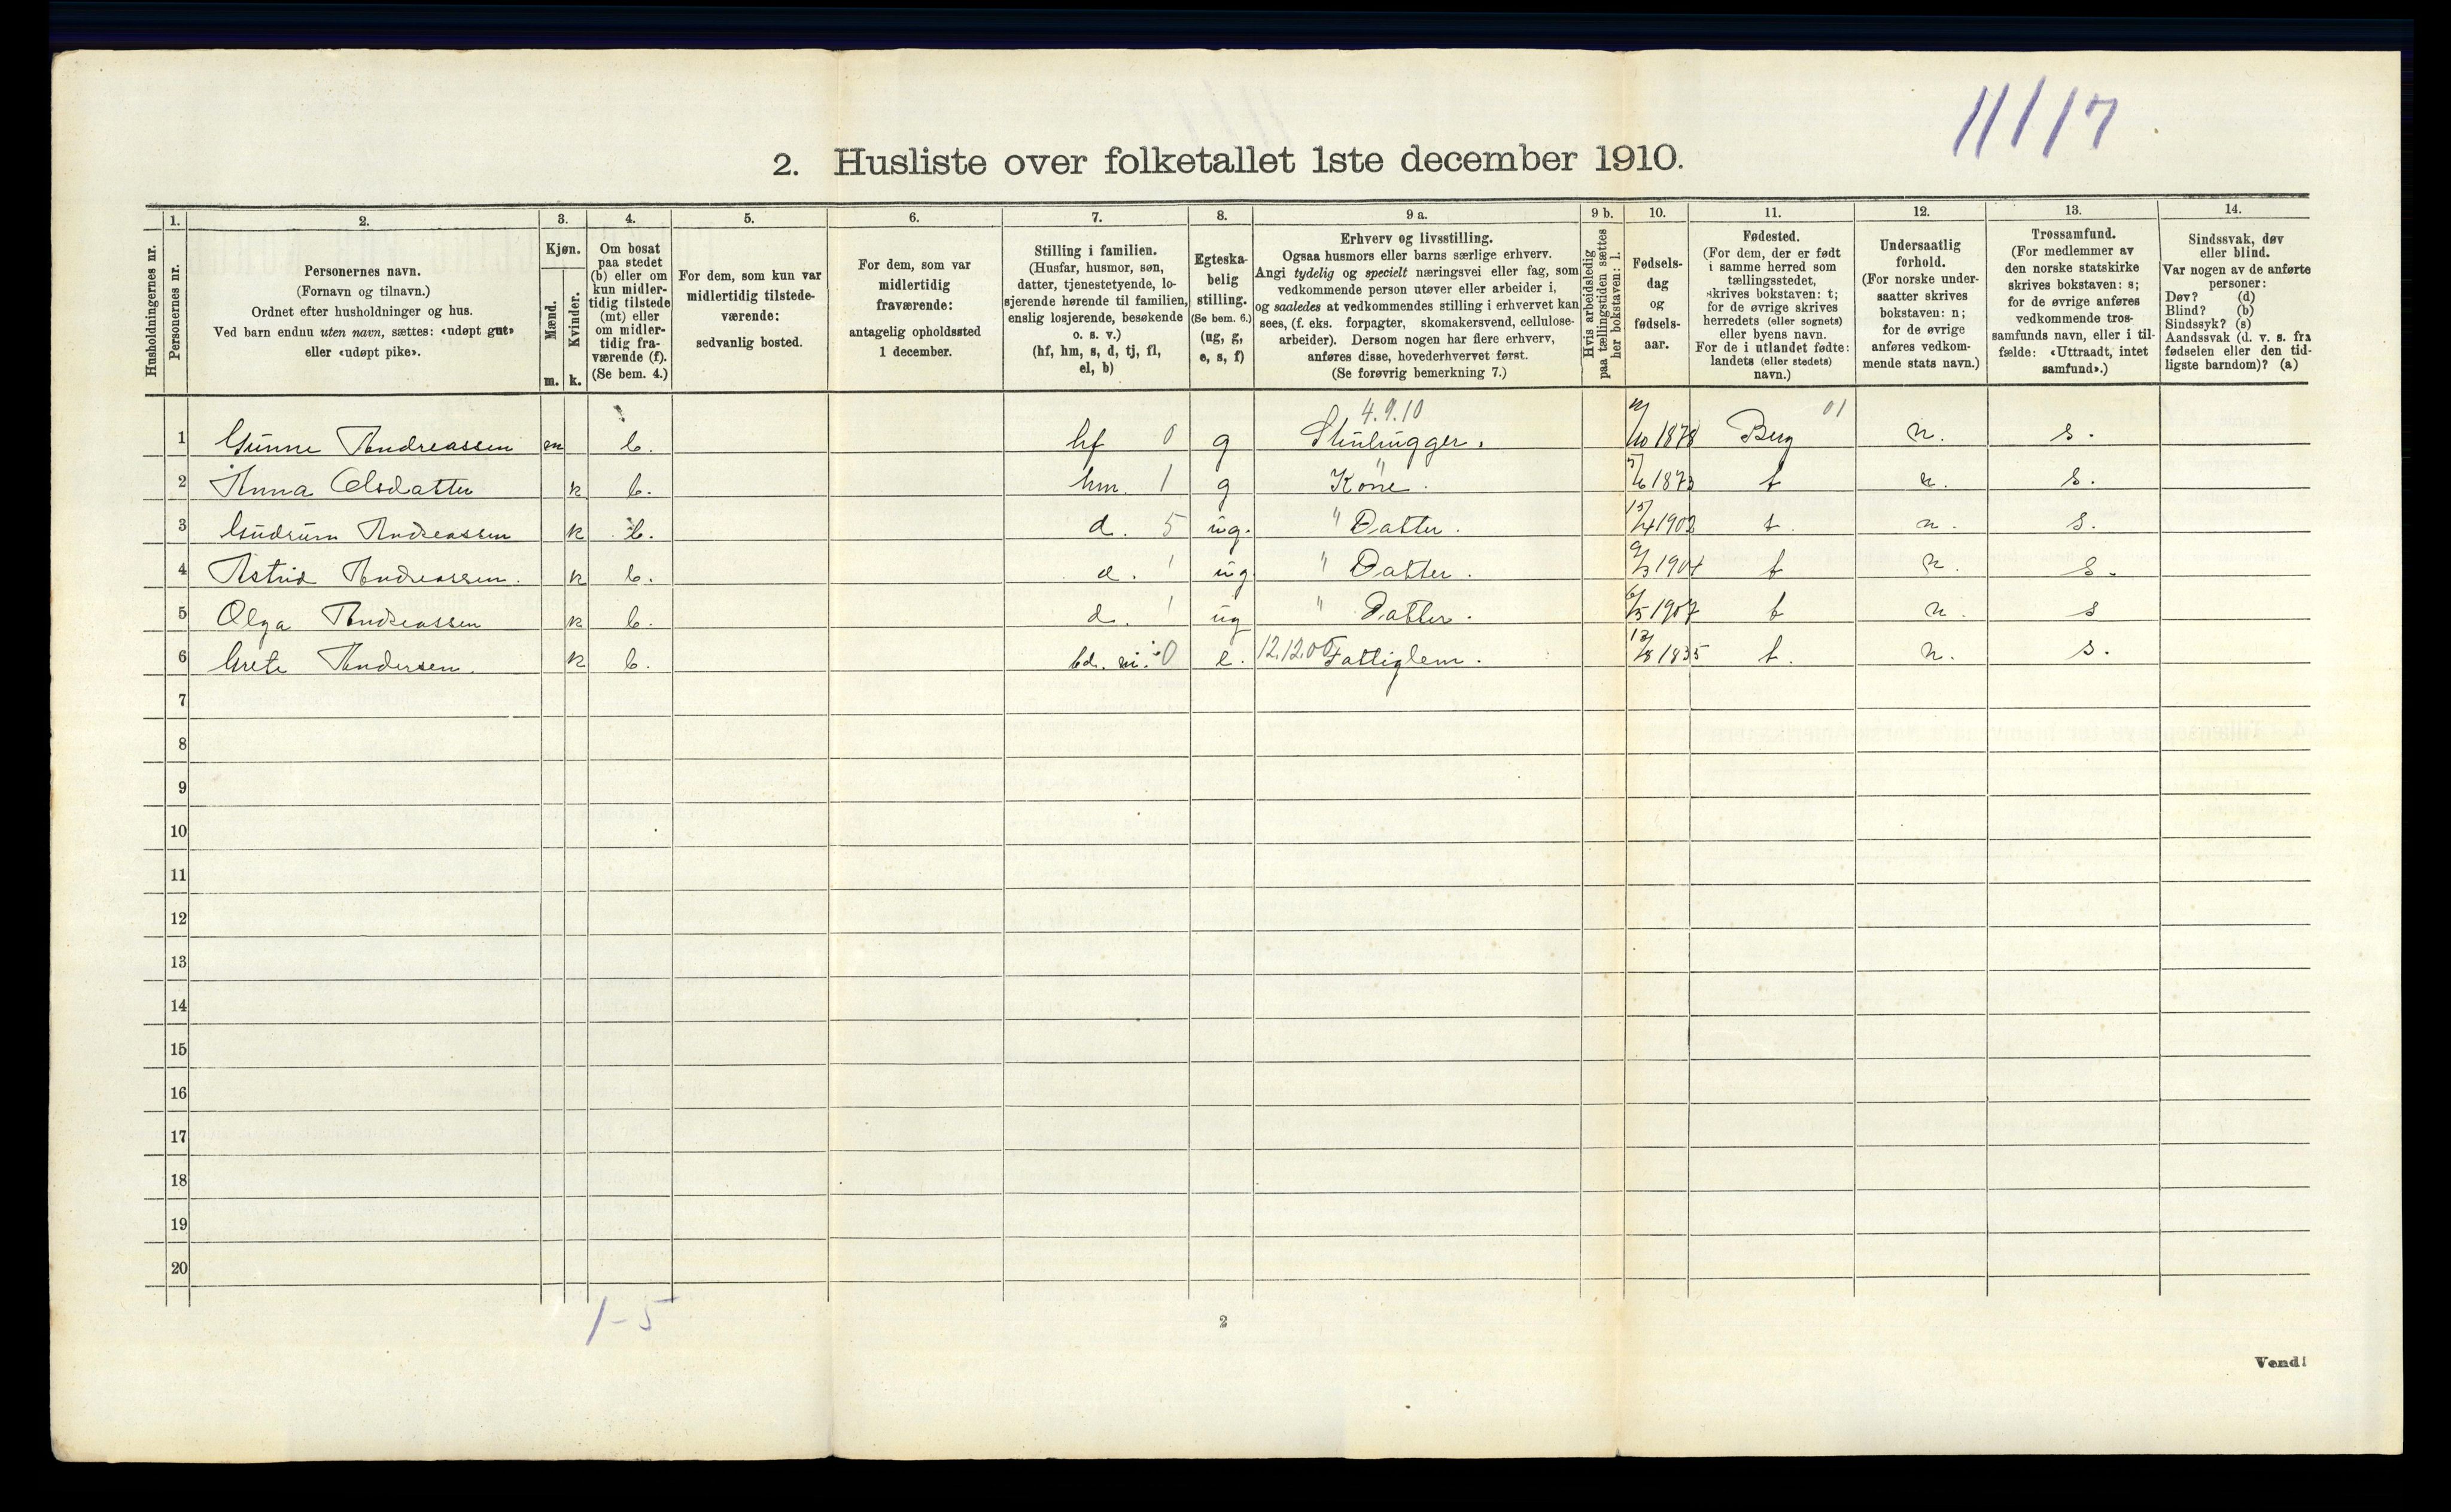 11/17
2. Husliste over folketallet 1ste december 1910.
1. 2. 3. 4. 5. 6. 7. 8. 9 a. 9 b. 10. 11. 12. 13. 14.
Husholdningernes nr.
Personernes nr.
Personernes navn.
(Fornavn og tilnavn.)
Ordnet efter husholdninger og hus.
Ved barn endnu uten navn, sættes: «udøpt gut»
eller «udøpt pike».
Kjøn.
Mænd.
Kvinder.
m. k.
Om bosat
paa stedet
(b) eller om
kun midler-
tidig tilstede
(mt) eller
om midler-
tidig fra-
værende (f).
(Se bem. 4.)
For dem, som kun var
midlertidig tilstede-
værende:
sedvanlig bosted.
For dem, som var
midlertidig
fraværende:
antagelig opholdssted
1 december.
Stilling i familien.
(Husfar, husmor, søn,
datter, tjenestetyende, lo-
sjerende hørende til familien,
enslig losjerende, besøkende
o. s. v.)
(hf, hm, s, d, tj, fl,
el, b)
Egteska-
belig
stilling.
(Se bem. 6.)
(ug, g,
e, s, f)
Erhverv og livsstilling.
Ogsaa husmors eller barns særlige erhverv.
Angi tydelig og specielt næringsvei eller fag, som
vedkommende person utøver eller arbeider i,
og saaledes at vedkommendes stilling i erhvervet kan
sees, (f. eks. forpagter, skomakersvend, cellulose-
arbeider). Dersom nogen har flere erhverv,
anføres disse, hovederhvervet først.
(Se forøvrig bemerkning 7.)
Hvis arbeidsledig
paa tællingstiden sættes
her bokstaven: l.
Fødsels-
dag
og
fødsels-
aar.
Fødested.
(For dem, der er født
i samme herred som
tællingsstedet,
skrives bokstaven: t;
for de øvrige skrives
herredets (eller sognets)
eller byens navn.
For de i utlandet fødte:
landets (eller stedets)
navn.)
Undersaatlig
forhold.
(For norske under-
saatter skrives
bokstaven: n;
for de øvrige
anføres vedkom-
mende stats navn.)
Trossamfund.
(For medlemmer av
den norske statskirke
skrives bokstaven: s;
for de øvrige anføres
vedkommende tros-
samfunds navn, eller i til-
fælde: «Uttraadt, intet
samfund».)
Sindssvak, døv
eller blind.
Var nogen av de anførte
personer:
Døv? (d)
Blind? (b)
Sindssyk? (s)
Aandssvak (d. v. s. fra
fødselen eller den tid-
ligste barndom)? (a)
4.9.10 01
1 Gunne Andreassen m b. hf 0 g Stenhugger. 1878 Berg n. s.
2 Anna Olsdatter k b. hm. 1 g " Kone. 5/6 1873 t n. s.
3 Gudrun Andreassen k b. d. 5 ug. " Datter. 15/4 1902 t. n. s.
4 Astrid Andreassen. k b. d. 1 ug " Datter. 9/3 1904 t n. s.
5 Olga Andreassen k b. d. 1 ug " Datter. 6/5 1907 t n. s
6 Grete Andersen. k b. 0 e. 12.12.00 Fattiglem. 1835 t. n. s.
7
8
9
10
11
12
13
14
15
16
17
18
19
20
1-5
2
Vend!